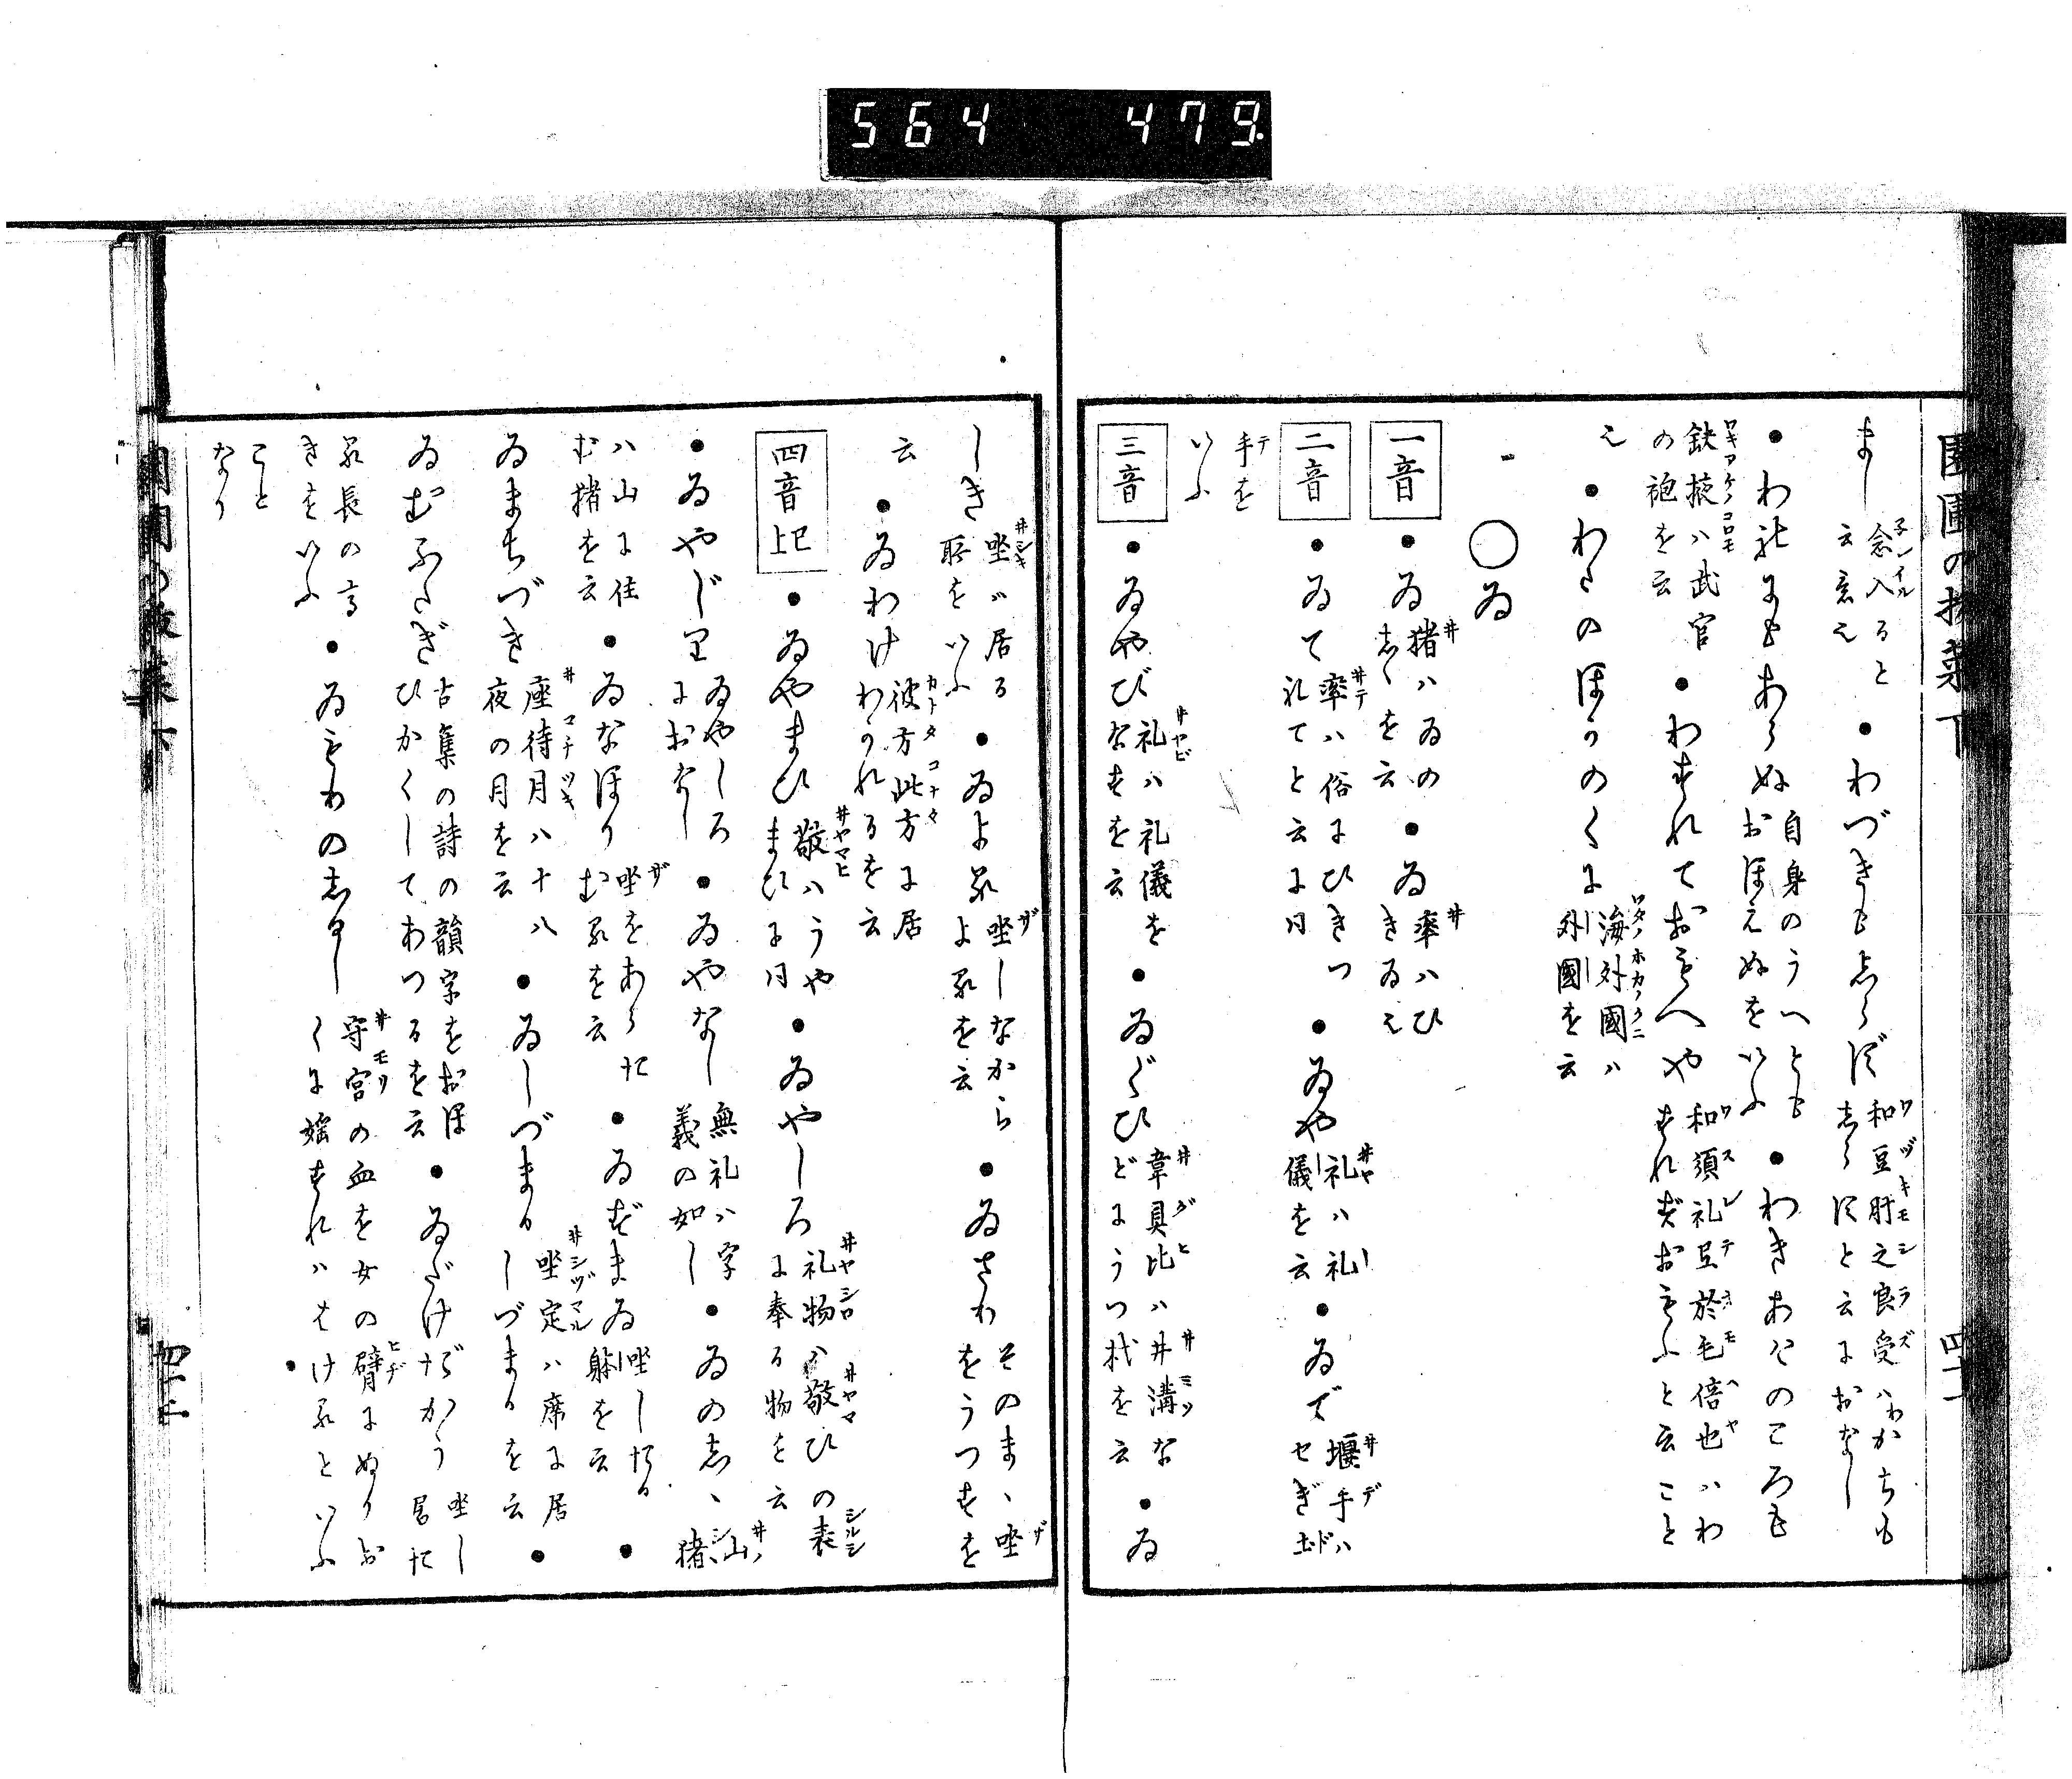 564 479
まし 念入ると云意之 ・わづきもしらず 和豆肝之良受ハわかちもしらずと云におなじ
・わにもあらぬ 自身のうへともおぼえぬをいふ ・わきあけのころも
缺掖ハ武官の袍を云 ・わすれておもへや 和須礼豆於毛倍也ハわすれておもふと云こと
之 ・わたのほかのくに 海外國ハ外國を云
○ゐ
一音 ・ゐ 猪ハゐのしゝを云 ・ゐ 率ハひきゐ之
二音 ・ゐて 率ハ俗にひきつれてと云に同 ・ゐや 礼ハ礼儀を云 ・ゐで 堰手ハセぎ土ド
手をいふ
三音 ・ゐやび 礼ハ礼儀をなすを云 ・ゐぐひ 韋具比ハ井溝などにうつ杙を云 ・ゐ
しき 坐ハ居る所をいふ ・ゐよる 坐しなからよるを云 ・ゐさわ そのまゝ坐をうつすを
云 ・ゐわけ 彼方此方に居わかれるを云
四音已上 ・ゐやまひ 敬ハうやまひに同 ・ゐやしろ 礼物ハ敬ひの表に奉る物を云
・ゐやじり ゐやしろにおなじ ・ゐやなし 無礼ハ字義の如し ・ゐのしゝ 山猪
ハ山に住む猪を云 ・ゐなほり 坐をあらたむるを云 ・ゐずまゐ 坐したる躰を云 ・
ゐまちづき 座待月ハ十八夜の月を云 ・ゐしづまる 坐定ハ席に居しづまるを云 ・
ゐむふたぎ 古集の詩の韻字をおほひかくしてあつるを云 ・ゐだけだかう 坐し居た
る長の高きをいふ ・ゐもりのしるし 守宮の血を女の臂にぬりおくに婬すれハはけるといふ
こと
なり